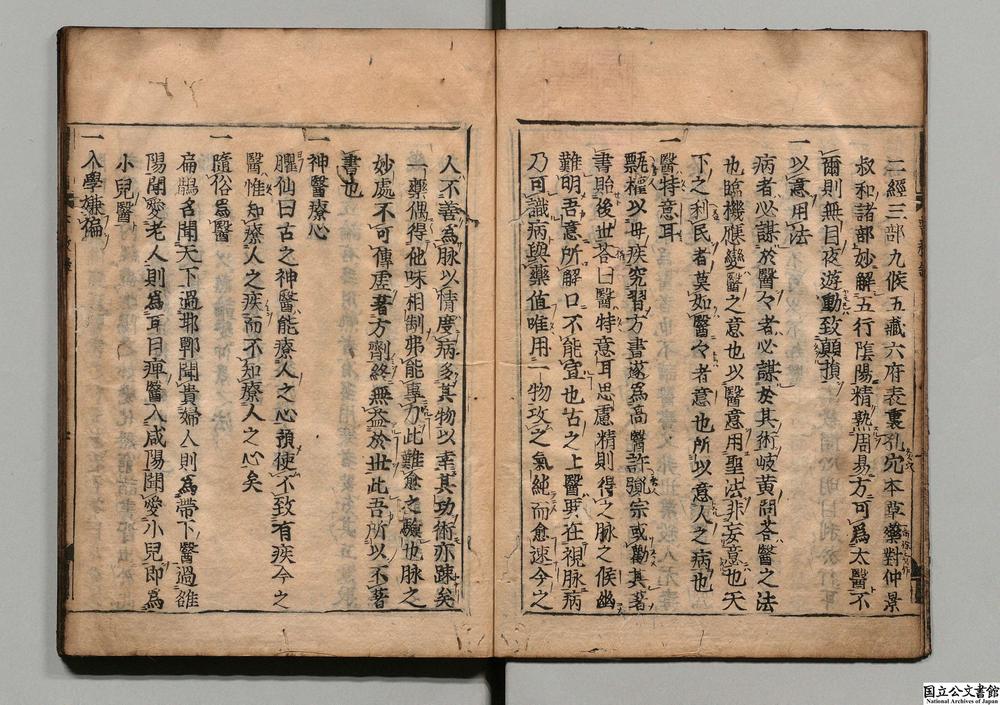 二經三部九候五藏六府表裏孔穴本草藥對仲景
叔和諸部妙解五行陰陽精熟周易方可爲太醫不
爾則無目夜遊動致顛損
一以意用法
病者必謀於醫々者必謀於其術岐黄問荅醫之法
也臨機應變醫之意也以醫意用聖法非妄意也天
下之利民者莫如醫々者意也所以意人之病也
一醫特意耳
甄權以母疾究習方書遂爲高醫許胤宗或勸其著
書貽後世荅曰醫特意耳思慮精則得之脉之候幽
難明吾意所解口不能宣也古之上醫要在視脉病
乃可識病與藥值唯用一物攻之氣純而愈速今之
人不善爲脉以情度病多其物以幸其功術亦踈矣
一藥偶得他味相制弗能專力此難愈之驗也脉之
妙處不可傳虛著方劑終無益於世此吾所以不著
書也
一神醫療心
臞仙曰古之神醫能療人之心預使不致有疾今之
醫惟知療人之疾而不知療人之心矣
一隨俗爲醫
扁鵲名聞天下過邯鄲聞貴婦人則爲帶下醫過雒
陽聞愛老人則爲耳目痺醫入咸陽聞愛小兒即爲
小兒醫
一入學嫌偏
国立公文書館
National Archives of Japan